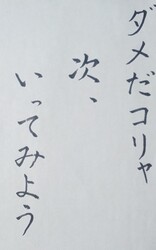 ダメだコリャ
次、
いってみよう